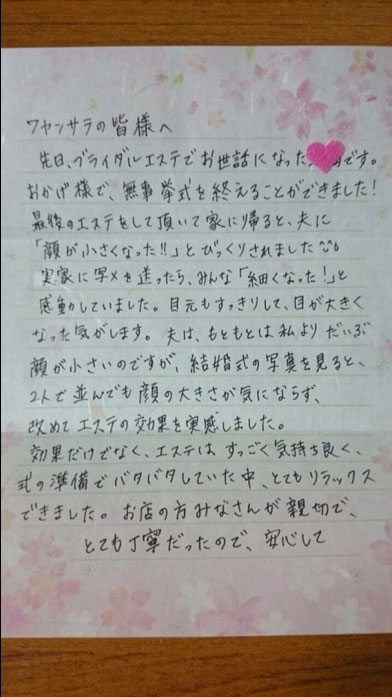 ワヤンサラの皆様へ
先日、ブライダルエステでお世話になった です。
おかげ様で、無事挙式を終えることができました!
最後のエステをして頂いて家に帰ると、夫に
「顔が小さくなった!!」とびっくりされました
実家に写メを送ったら、みんな「細くなった!」と
感動していました。目元もすっきりして、目が大きく
なった気がします。夫は、もともとは私よりだいぶ
顔が小さいのですが、結婚式の写真を見ると、
2人で並んでも顔の大きさが気にならず、
改めてエステの効果を実感しました。
効果だけでなく、エステはすっごく気持ち良く、
式の準備でバタバタしていた中、とてもリラックス
できました。お店の方みなさんが親切で、
とても丁寧だったので、安心して